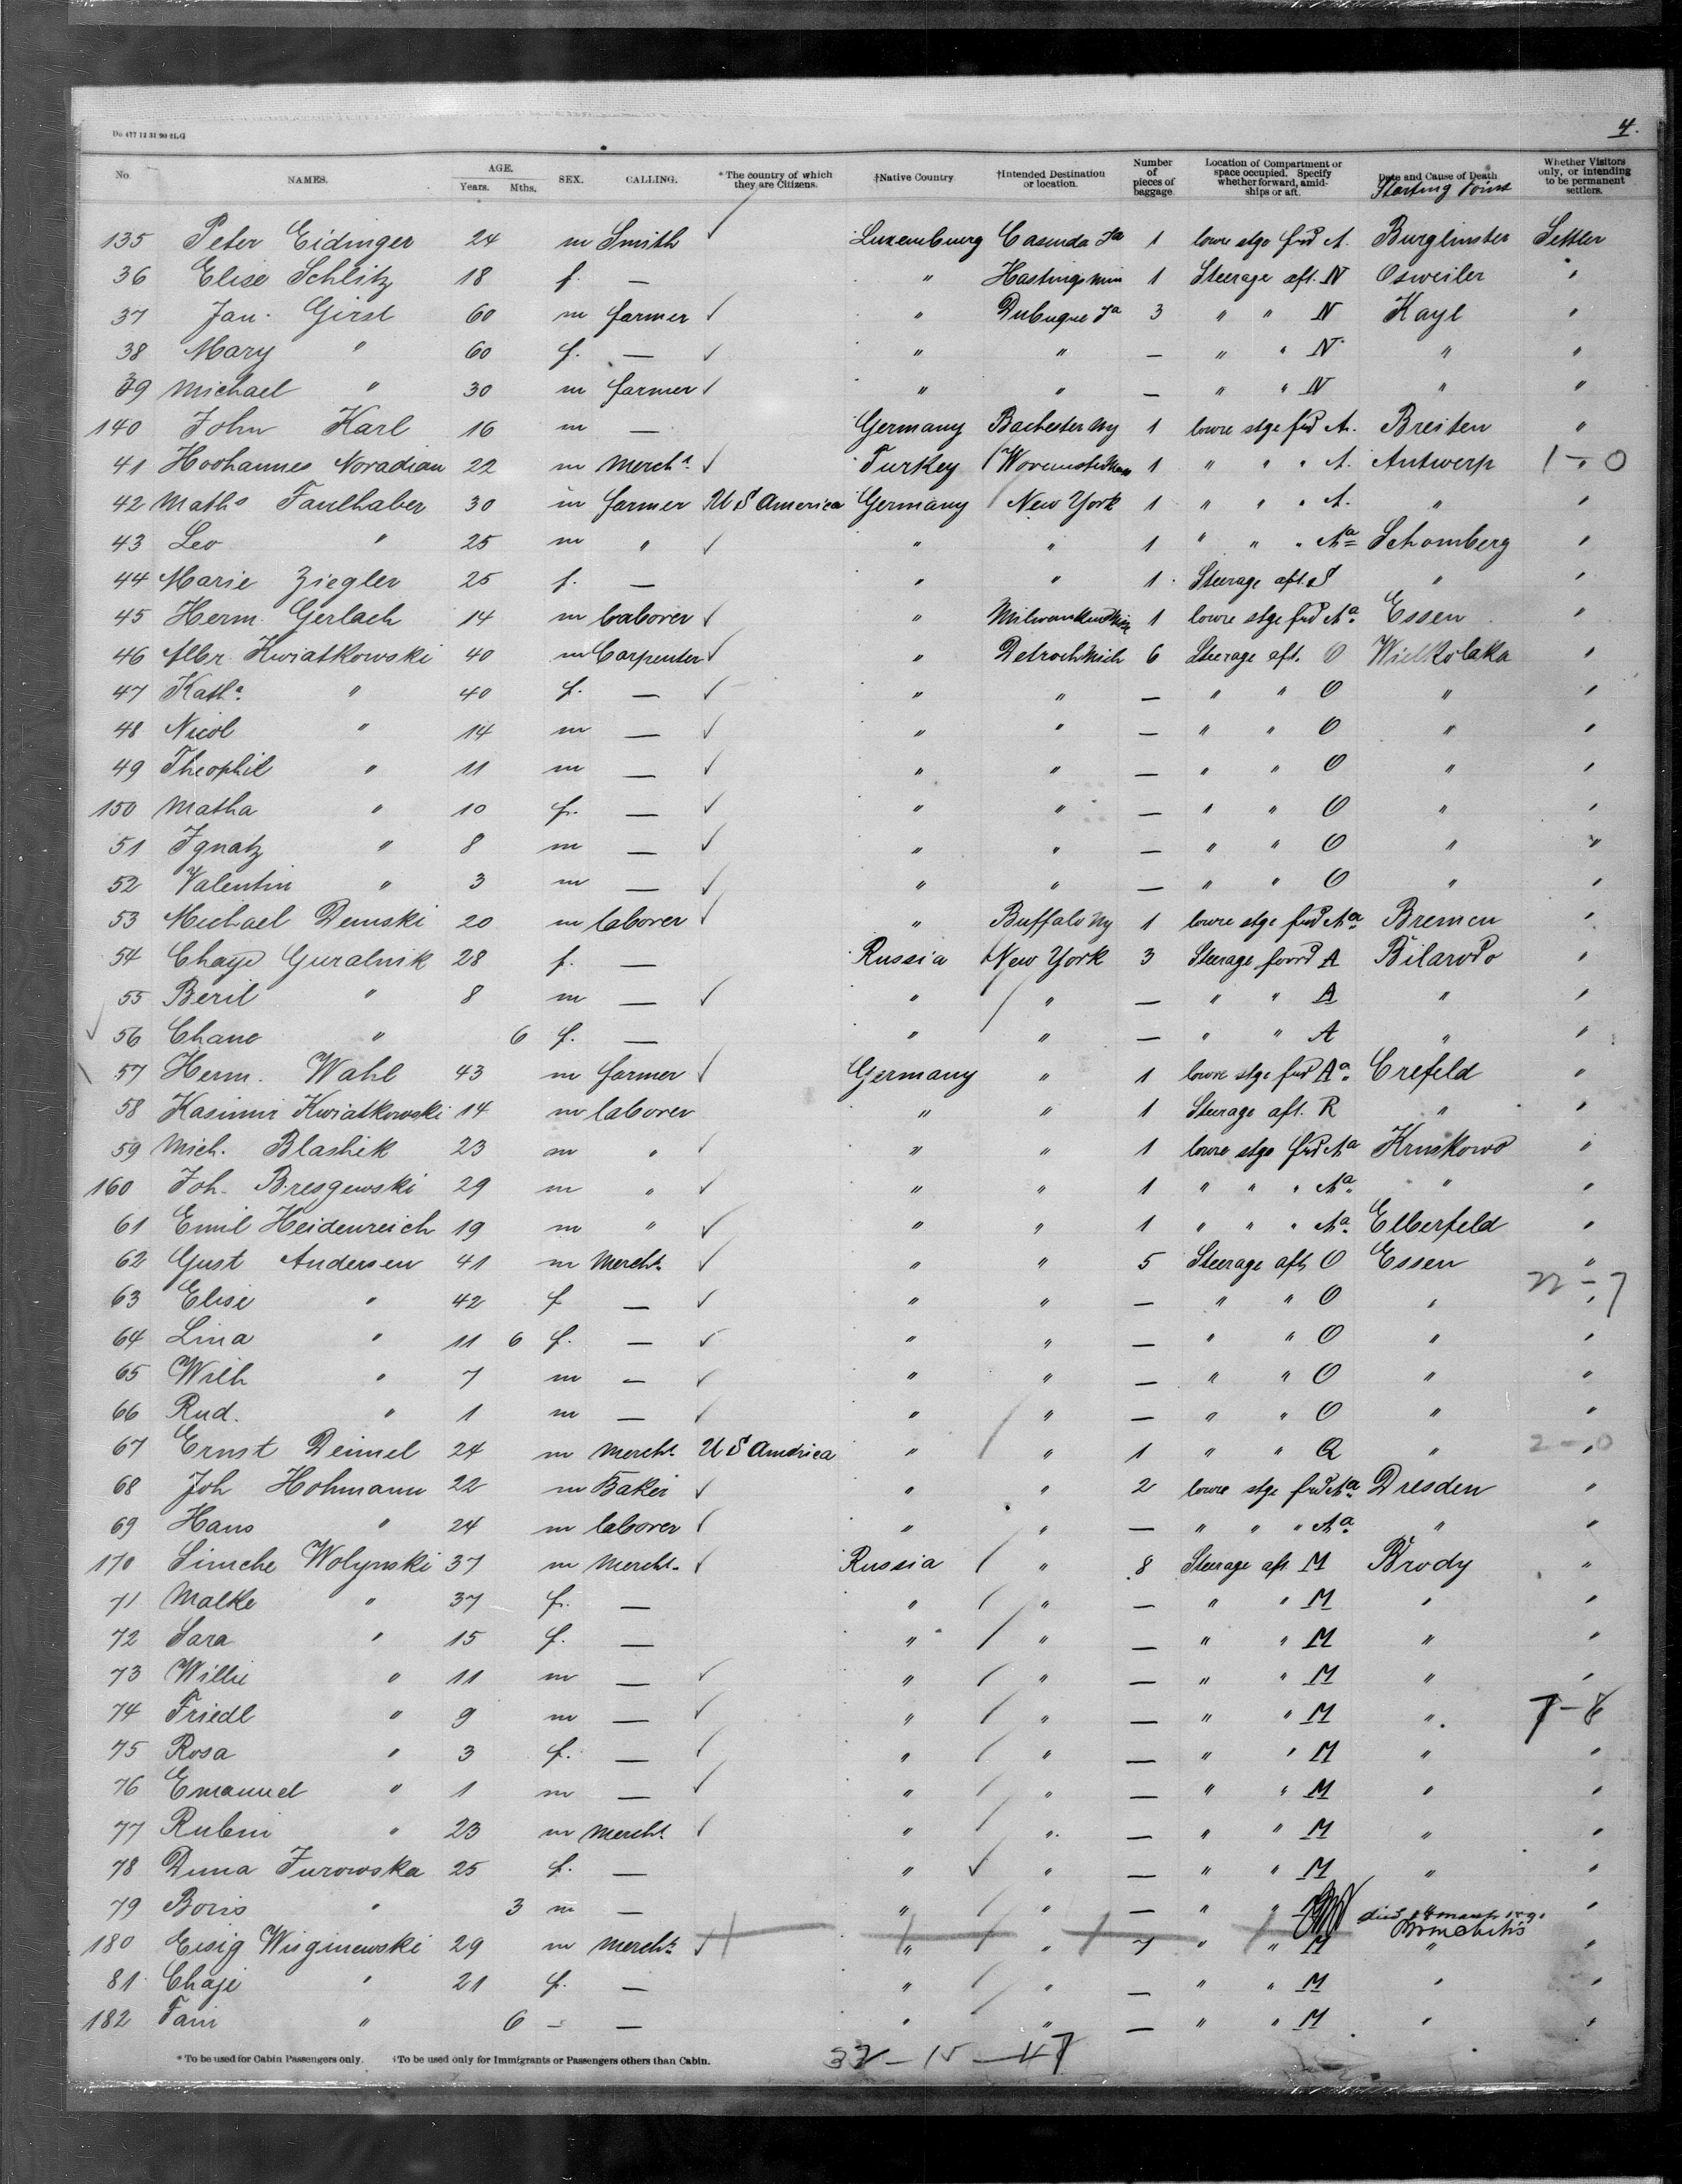 Do 477 12 31 90 2LG
4.
No. NAMES. AGE. Years. Mths. SEX. CALLING. *The country of which they are Citizens. †Native Country †Intended Destination or location. Number of pieces of baggage Location of Compartment or space occupied. Specify whether forward, amidships or aft. Date and Cause of Death Starting Point Whether Visitors only, or intending to be permanent settlers.
135 Peter Eidinger 24 m Smith ✓ Luxemburg Ia 1 lowre stge fwd A. Burglinster Settler
36 Elise Schlitz 18 f. — " Hastings Min 1 Steerage aft. N Osweiler "
37 Jan. Girst 60 m farmer ✓ " Dubuque Ia 3 " " N Kayl "
38 Mary " 60 f. — ✓ " " — " " N " "
39 Michael " 30 m farmer ✓ " " — " " N " "
140 John Karl 16 m — Germany Bachester Ny 1 lowre stge fwd A. Breiten "
41 Hoohannes Noradian 22 m Mercht. ✓ Turkey 1 " " " A. Antwerp 1-0 "
42 Maths Faulhaber 30 m farmer U S America Germany New York 1 " " " A. " "
43 Leo " 25 m " ✓ " " 1 " " " Aa Schomberg "
44 Marie Ziegler 25 f. — " " 1 Steerage aft. S " "
45 Herm. Gerlach 14 m laborer ✓ " 1 lowre stge fwd Aa Essen "
46 Albr. Kwiatkowski 40 m Carpenter ✓ " Detroit Mich 6 Steerage aft. O Wielkolaka "
47 Katha. " 40 f. — ✓ " " — " " O " "
48 Nicol " 14 m — ✓ " " — " " O " "
49 Theophil " 11 m — ✓ " " — " " O " "
150 Matha " 10 f. — ✓ " " — " " O " "
51 Ignatz " 8 m — ✓ " " — " " O " "
52 Valentin " 3 m — ✓ " " — " " O " "
53 Michael Demski 20 m laborer ✓ " Buffalo Ny 1 lowre stge fwd Aa Bremen "
54 Chaye Guralnik 28 f. — Russia New York 3 Steerage forwd A "
55 Beril " 8 m — ✓ " " — " " A " "
56 Chane " 6 f. — " " — " " A " "
57 Herm. Wahl 43 m farmer ✓ Germany " 1 lowre stge fwd Aa Crefeld "
58 Kasimir Kwiatkowski 14 m laborer " " 1 Steerage aft. R " "
59 Mich. Blashik 23 m " ✓ " " 1 lowre stge fwd Aa "
160 Joh. Bresgewski 29 m " ✓ " " 1 " " " Aa " "
61 Emil Heidenreich 19 m " ✓ " " 1 " " " Aa Elberfeld "
62 Gust Andersen 41 m Mercht. ✓ " " 5 Steerage aft O Essen "
63 Elise " 42 f — ✓ " " — " " O " " 22-7
64 Lina " 11 6 f. — ✓ " " — " " O " "
65 Wilh " 7 m — ✓ " " — " " O " "
66 Rud. " 1 m — ✓ " " — " " O " "
67 Ernst Deimel 24 m Mercht. U S America " " 1 " " Q " " 2-0
68 Joh Hohmann 22 m Baker ✓ " " 2 lowre stge fwd Aa Dresden "
69 Hans " 24 m laborer ✓ " " — " " " Aa " "
170 Simche Wolynski 37 m Mercht. ✓ Russia " 8 Steerage aft. M Brody "
71 Malke " 37 f. — " " — " " M " "
72 Sara " 15 f. — " " — " " M " "
73 Willie " 11 m — ✓ " " — " " M " "
74 Friedl " 9 m — ✓ " " — " " M " " 7-8
75 Rosa " 3 f. — ✓ " " — " " M " "
76 Emanuel " 1 m — ✓ " " — " " M " "
77 Rubin " 23 m Mercht. ✓ " " — " " M " "
78 Duna Jurowska 25 f. — " ✓ " — " " M " "
79 Boris " 3 m — " " — " " died 18 march 1891 Bronchitis "
180 Eisig Wisginewski 29 m Mercht. ✓ " " 7 " " M " "
81 Chaje " 21 f. — " " — " " M " "
182 Fani " 6 - — " " — " " M " "
*To be used for Cabin Passengers only. †To be used only for Immigrants or Passengers others than Cabin.
32-15-47